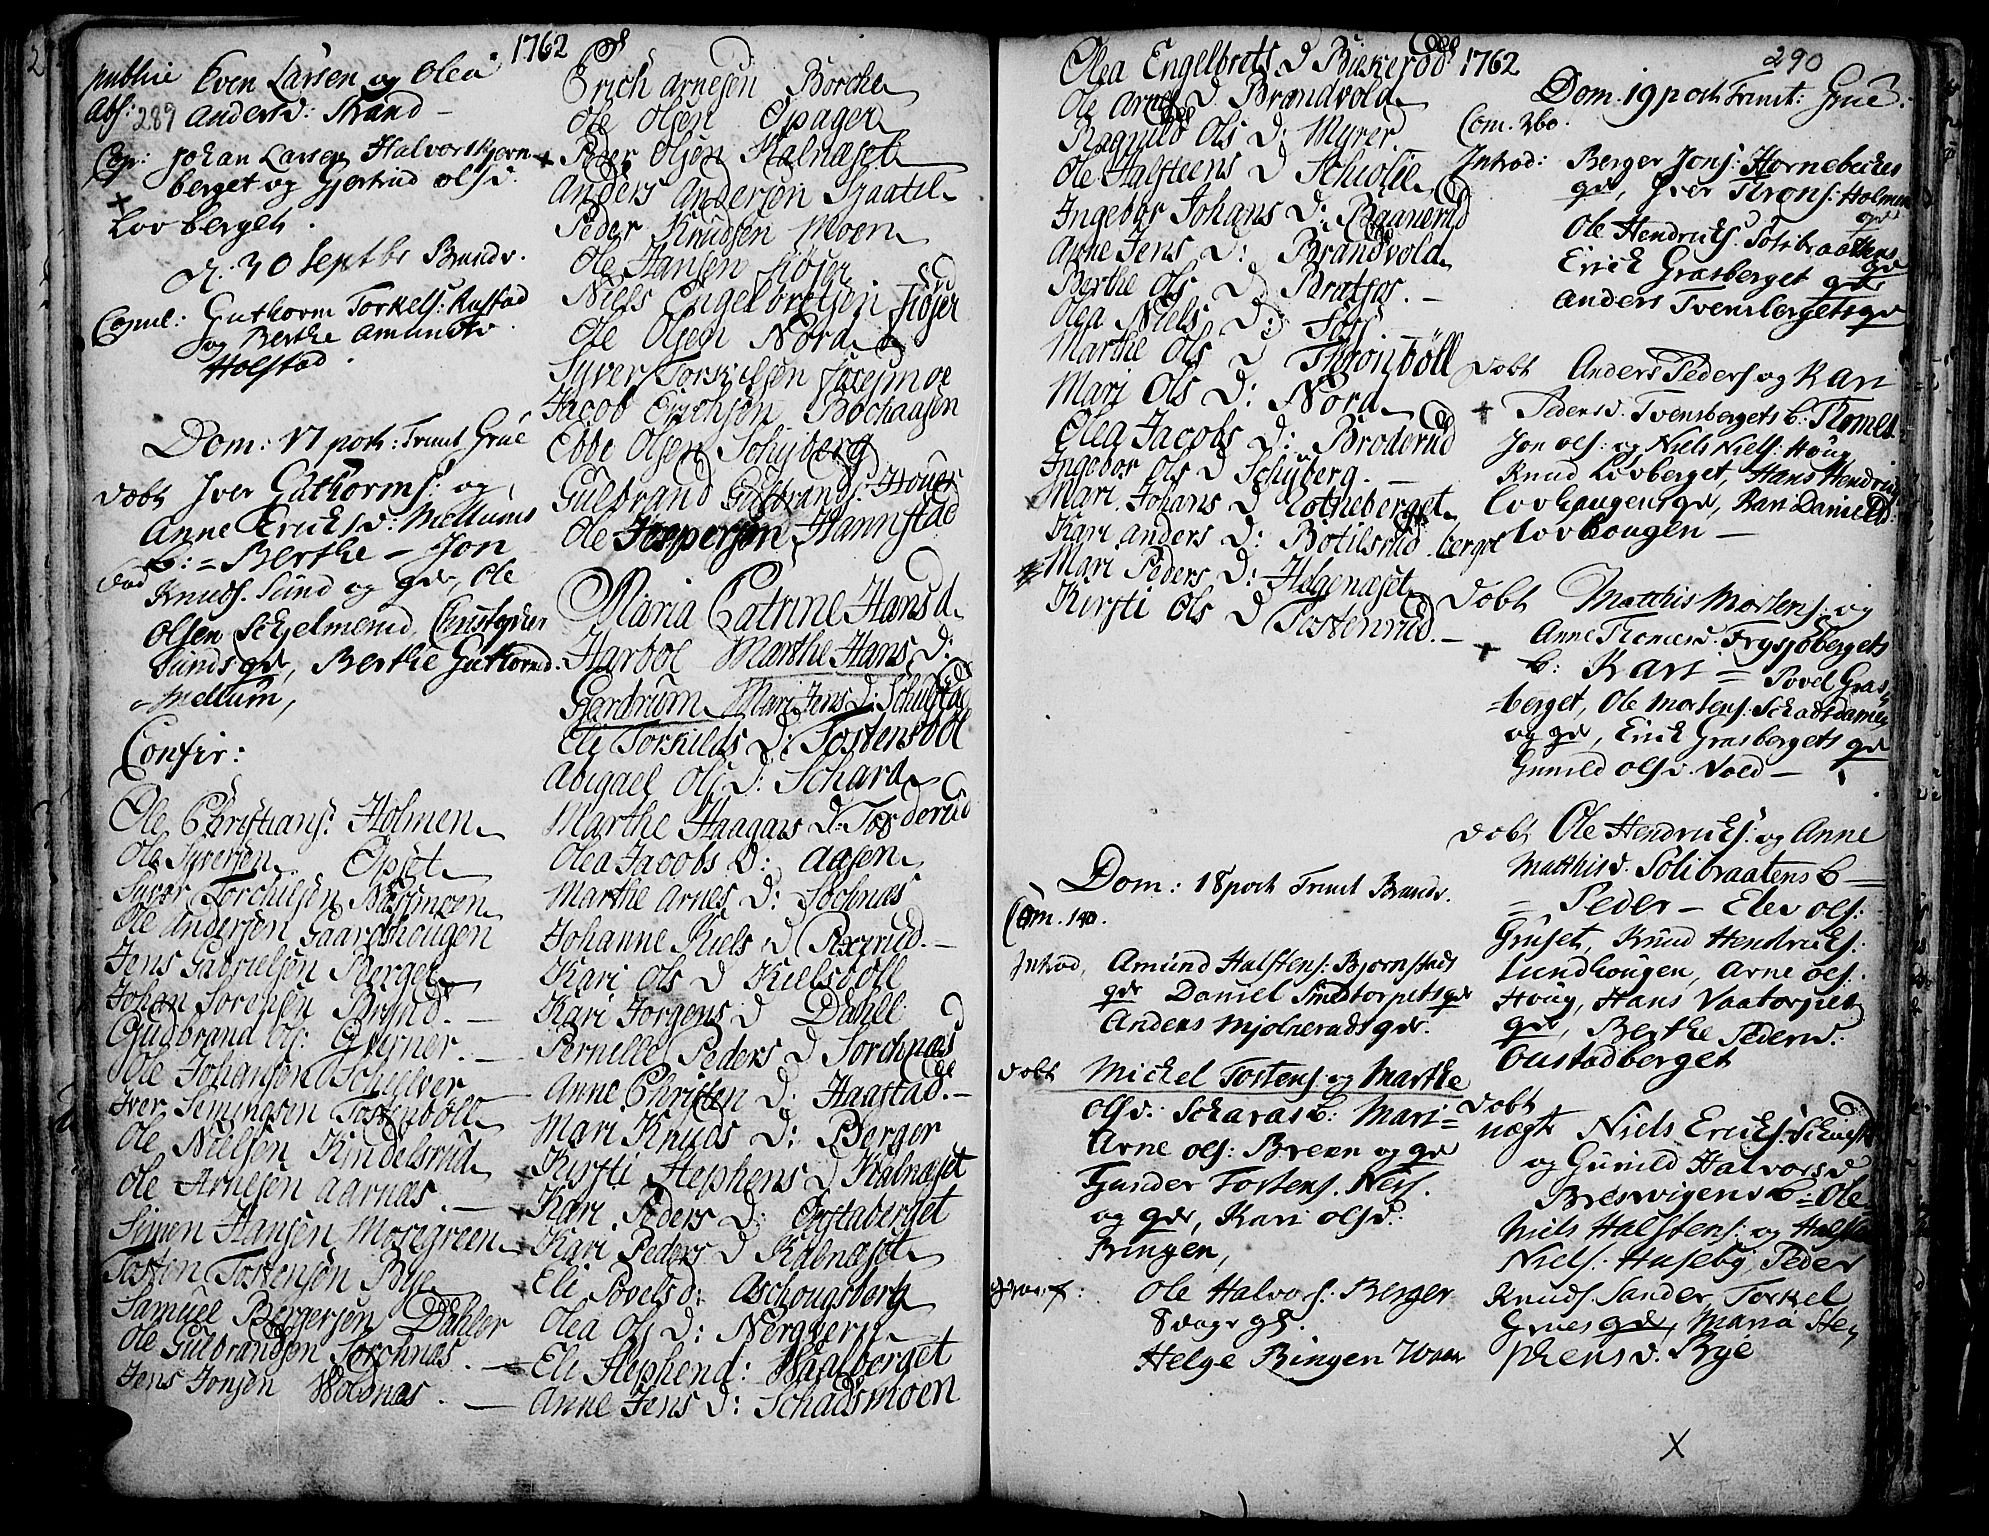 1762
289
publice Even Larsen og Olea
abs: Andersd: Strand –
Cop: Johan Larsen Halvorskjern-
berget og Gjertrud olsd.
Lovberget.
D: 30 Septbr Brandv.
Copul: Guthorm Torkels: Rustad
og Berthe Amundsd
Holstad.
Dom: 17 post: Trinit Grue
Døbt Iver Guthorms: og
Anne Ericksd: Mellums
b: = Berthe – Jon
Knuds. Sund og qde, Ole
Olsen Schjelmerud, Christopher
Sunds qde, Berthe Guthormd:
Mellum,
Confir:
Ole Christians: Holmen
Ole Syversen Opset
Syver Torchilsen Moen
Ole Andersen Gaardshougen
Jens Gabrielsen Berger
Johan Sørensen Brynd. –
Gudbrand Ols: Qverner. –
Ole Johansen Schulver
Iver Semingsen Tostenbøll
Ole Nielsen Kindelsrud
Ole Arnesen Aarnæs. –
Simen Hansen Mosegreen
Tosten Tostensøn Bye
Samuel Bergersen Dahler
Ole Gulbrandsen Sorchnæs. –
Jens Jonsen Woldnæs. –
Erich Arnesen Borche
Ole Olsen Opager
+ Peder Olsen Kalnæset
Anders Andersen Graatil
Peder Knudsen Moen
Ole Hansen Siøser
Niels Engelbretsen Siøser
Ole Olsen Nord
Syver Torkilsen
Jacob Erichsen Bochaagen
Ebbe Olsen Schyberg
Gulbrand Gulbrands: Houer
Ole Jespersen Hannstad
Maria Catrine Hansd
Harboe Marthe Hans D:
Gjerdrum Mari Jens D: Schulstad
Eli Torkilds D: Tostensbøl
Abigael Ols D: Schara
Marthe Haagans D: Torderud
Olea Jacobs D: Aasen
Marthe Arnes D: Sochnæs
Johanne Kiels D Rexrud. –
Kari Ols D Kielsbøll
Kari Jorgens D Dahel
Pernille Peders D Sorchnæs
Anne Christen D: Haastad. –
Mari Knuds D: Berger
Kirsti Stephens D Kalnæset
Kari Peders D: Opstaberget
Kari Peders D Kalnæset
Eli Povels D: Aschougsberg
Olea Ols D: Nergvern
Eli Stephend: Waalberget
Anne Jens D: Schadsmoen
1762
290
Olea Engelbrets D Buskerud
Ole Arnes D Brandvold
Ragnild Ols D: Myrer.
Ole Halsteens D Schiolie
Ingebor Johans D: Raanerud
Arne Jens D: Brandvold
Berthe Ols D Bratfos. –
Olea Niels D: Fors
Marthe Ols D Thronbøll
Mari Ols D: Nord
Olea Jacobs D: Broderud
Ingebor Ols D Schyberg. –
Mari Johans D: Lotneberget
Kari Anders D: Botilsrud
Mari Peders D: Helgenæset
Kirsti Ols D Tostenrud. –
Dom: 18 post Trinit Brandv.
Com. 140.
Introd, Amund Halstens: Bjornstads
qde Daniel Smedtorpets qde
Anders Mjolnerads qde.
Døbt Michel Tostens: og Marthe
olsd: Scharas b: Mari =
Arne ols: Breen og qde
Gunder Tostens. Ness.
og qde, Kari olsd:
Ringen,
Ole Halvors: Berger
Svage qde.
Helge Ringen
Dom. 19 post Trinit: Grue.
Com. 260.
Introd: Berger Jons: Hornebeckes
qde, Iver Trons: Holmen
qde
Ole Hendricks: Solibraatens
qde
Erick Grasberget qde
Anders Tvensbergets qde
Døbt Anders Peders og Kari
+ Pedersd. Tvensbergets b. Thomes
Jon ols: og Niels Niels: Houg
Knud Lovberget, Hans Hendrich
Lovhaugens qde, Kari Danields:
berget Lovhougen –
Døbt Matthis Mortens: og
+ Anne Thomesd. Frysjøbergets
b: Kari = Povel Gras-
=berget, Ole Mortens: Schadsdamen
og qde, Erick Grasbergets qde
Gunild olsd. Vold –
Døbt Ole Hendricks: og Anne
Matthisd. Solibraatens b –
= Peder – Elev ols:
Gruset, Knud Hendricks:
Lundhougen, Arne ols:
Houg, Hans Vaatorpet
qde, Berthe Pedersd:
Oustadberget
Døbt
uægte Niels Ericks:
og Gunild Halvorsd
Bresvigens b = Ole
Niels Halstens: og Halsten
Niels: Huseby, Peder
Knuds. Sander, Torkel
Grues qde, Maria Ste-
phensd. Bye
X